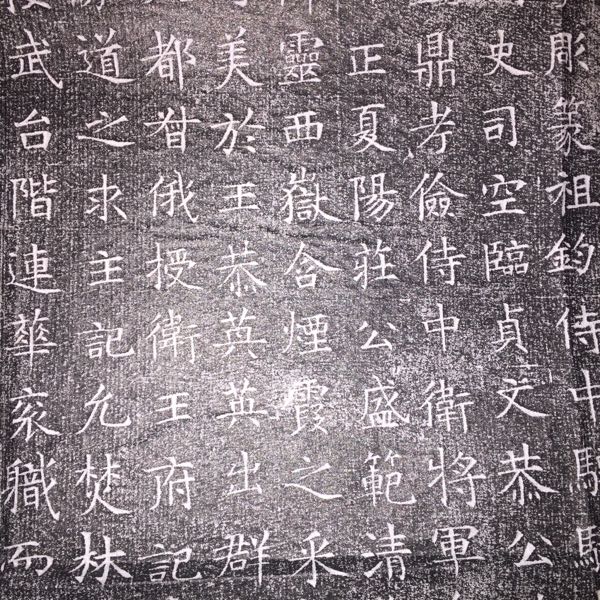 彫篆祖鈞侍中駙
史司空臨貞文恭公
鼎考儉侍中衛將軍
正夏陽莊公盛範清
靈西嶽含煙霞之采
美於王恭英英出群
都督俄授衛王府記
道之求主記允焚林
武台階連華衮職而